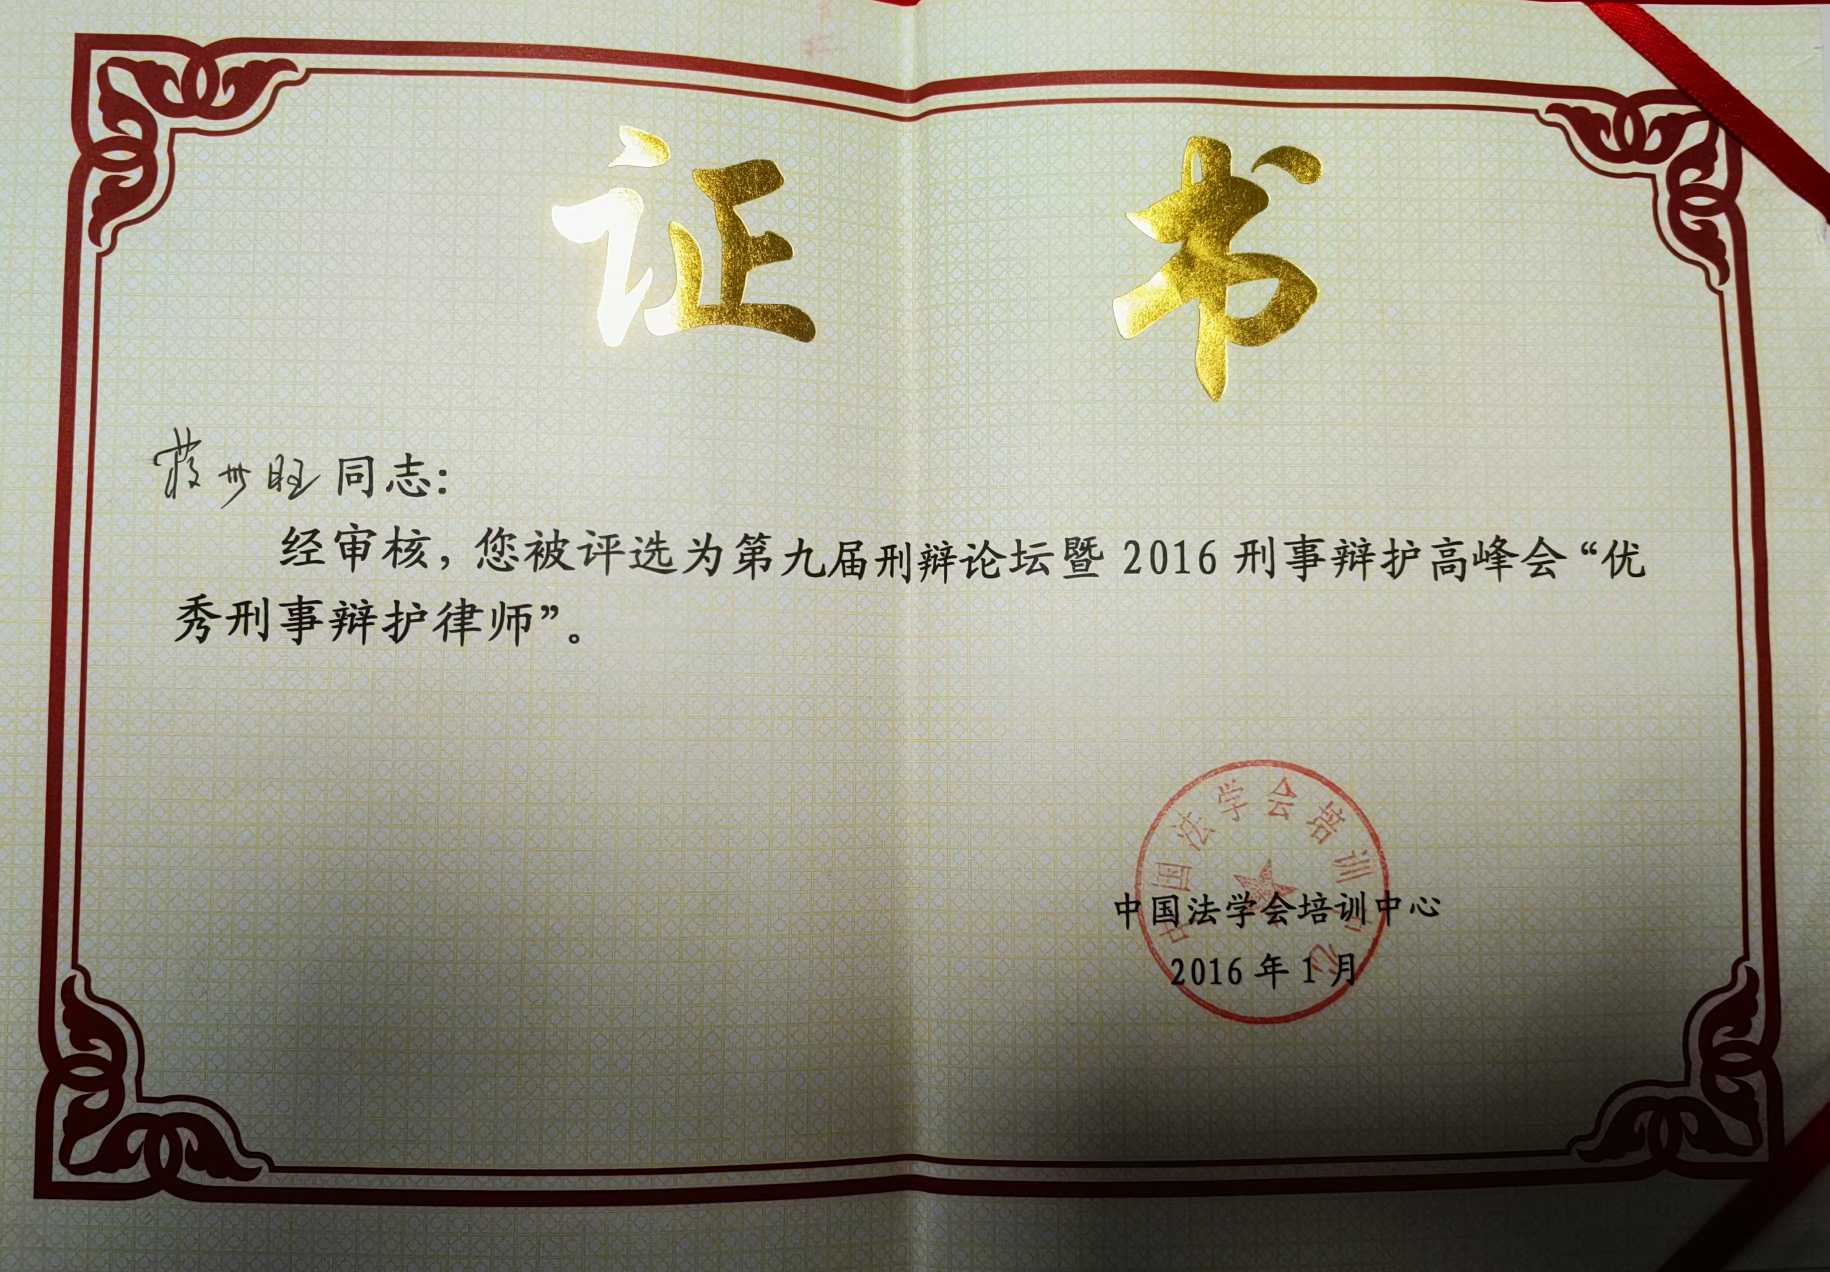 证书
同志：
经审核，您被评选为第九届刑辩论坛暨 2016 刑事辩护高峰会“优
秀刑事辩护律师”。
中国法学会培训中心
中国法学会培训中心
2016 年 1 月